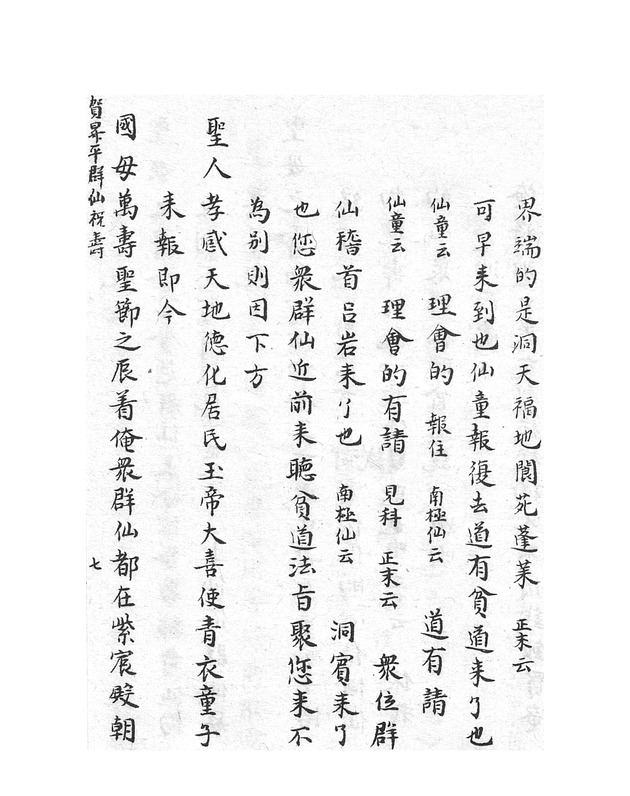 界端的是洞天福地閬苑蓬萊 正末云
可早来到也仙童報復去道有貧道来了也
仙童云 理會的 報住 南極仙云 道有請
仙童云 理會的有請 見科 正末云 衆位群
仙稽首吕岩来了也 南極仙云 洞賓来了
也您衆群仙近前来聽貧道法旨聚您来不
為别則因下方
聖人孝感天地德化居民玉帝大喜使青衣童子
来報即今
國母萬壽聖節之辰着俺衆群仙都在紫宸殿朝
賀昇平群仙祝壽 七